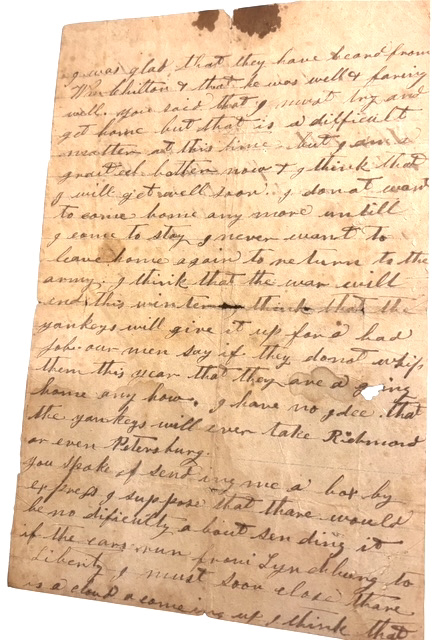 I was glad that they have heard from
Wm Whitton & that he was well & faring
well. you said that I must try and
get home but that is a difficult
matter at this time. but I am a
great eh bother now & I think that
I will get well soon.. I do not want
to come home any more untill
I come to stay I never want to
leave home again to return to the
army. I think that the war will
end this winter I think that the
yankeys will give it up for a bad
Job. our men say if they do not whip
them this year that they are a going
home any how. I have no Idee that
the yankeys will ever take Richmond
or even Petersburg.
you spoke of sending me a box by
express I suppose that thare would
be no dificulty a bout sending it
if the cars run from Lynchburg to
Liberty I must soon close thare
is a cloud a comeing up I think that